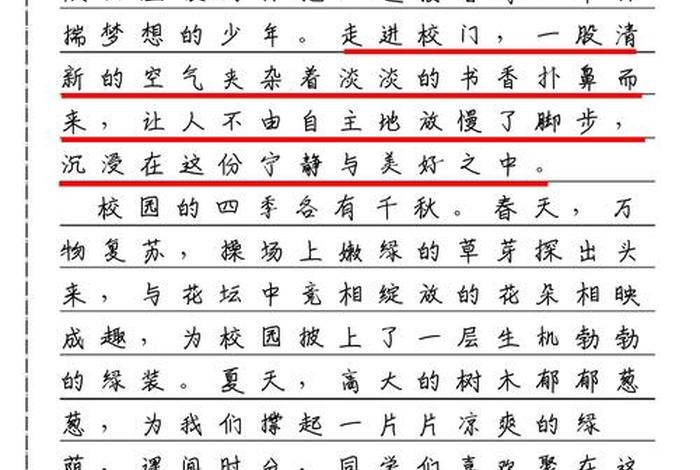 揣梦想的少年。走进校门，一股清
新的空气夹杂着淡淡的书香扑鼻而
来，让人不由自主地放慢了脚步，
沉浸在这份宁静与美好之中。
校园的四季各有千秋。春天，万
物复苏，操场上嫩绿的草芽探出头
来，与花坛中竞相绽放的花朵相映
成趣，为校园披上了一层生机勃勃
的绿装。夏天，高大的树木郁郁葱
葱，为我们撑起一片片凉爽的绿
荫，课间时分，同学们喜欢聚在这